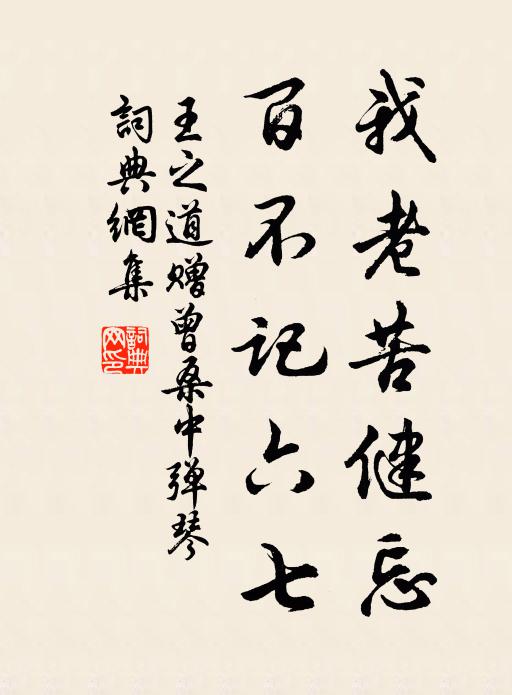 我老苦健忘
百不记六七
王之道赠曾桑中弹琴
詞典網集
詞典网印